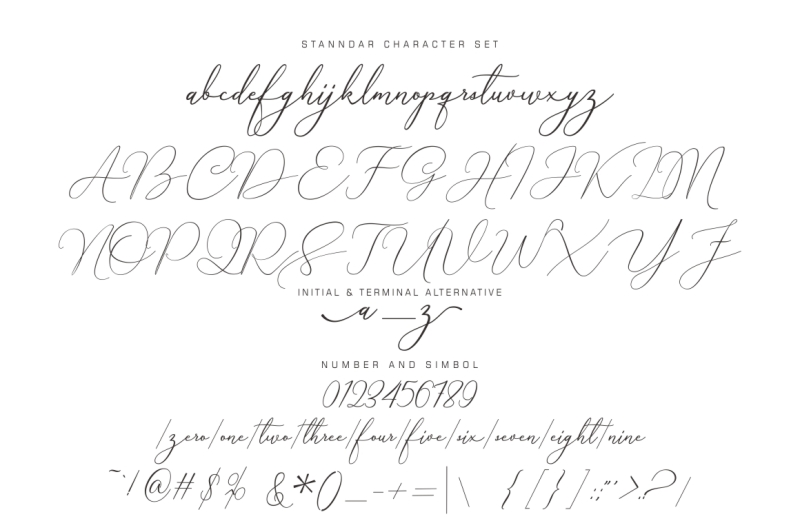 STANNDAR CHARACTER SET
abcdefghijklmnopqrstuvwxyz
ABCDEFGHIJKLM
NOPQRSTUVWXYZ
INITIAL & TERMINAL ALTERNATIVE
a_z
NUMBER AND SIMBOL
0123456789
/zero/one/two/three/four/five/six/seven/eight/nine
~`!@#$% &*()_-+=|\ {[}]:;"'>.?/